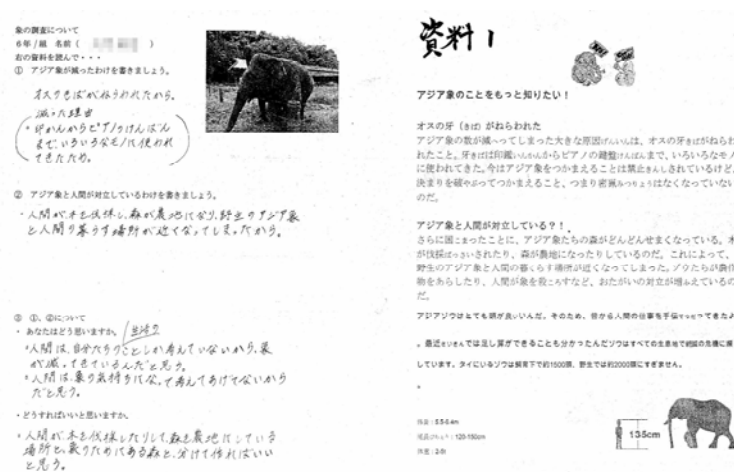 象の調査について
6年1組 名前( )
右の資料を読んで・・・
① アジア象が減ったわけを書きましょう。
オスのきばがねらわれたから。
減った理由
印かんからピアノのけんばん
まで、いろいろなモノに使われ
てきたため。
② アジア象と人間が対立しているわけを書きましょう。
・人間が木を伐採し、森が農地になり、野生のアジア象
と人間の暮らす場所が近くなってしまったから。
③ ①、②について
・あなたはどう思いますか。
・人間は、自分たちのことしか考えていないから、象
が減ってきているんだと思う。
・人間は、象の気持ちになって考えてあげてないから
だと思う。
・どうすればいいと思いますか。
・人間が木を伐採したりして、森を農地にしている
場所と、象のためにある森と、分けて作ればいい
と思う。
資料1
アジア象のことをもっと知りたい!
オスの牙(きば)がねらわれた
アジア象の数が減へってしまった大きな原因げんいんは、オスの牙きばがねらわ
れたこと。牙きばは印鑑いんかんからピアノの鍵盤けんばんまで、いろいろなモノ
に使われてきた。今はアジア象をつかまえることは禁止きんしされているけど、
決まりを破やぶってつかまえること、つまり密猟みつりょうはなくなっていない
のだ。
アジア象と人間が対立している?!
さらに困こまったことに、アジア象たちの森がどんどんせまくなっている。木
が伐採ばっさいされたり、森が農地になったりしているのだ。これによって、
野生のアジア象と人間の暮くらす場所が近くなってしまった。ゾウたちが農作
物をあらしたり、人間が象を殺ころすなど、おたがいの対立が増ふえているの
だ。
アジアゾウはとても頭が良いいんだ。そのため、昔から人間の仕事を手伝てつだってきたよ
。最近さいきんでは足し算ができることも分かったんだゾウはすべての生息地で絶滅の危機に瀕
しています。タイにいるゾウは飼育下で約1500頭、野生では約2000頭にすぎません。
。
体長:5.5-6.4m
尾長(びちょう):120-150cm
体重:2-5t
135cm